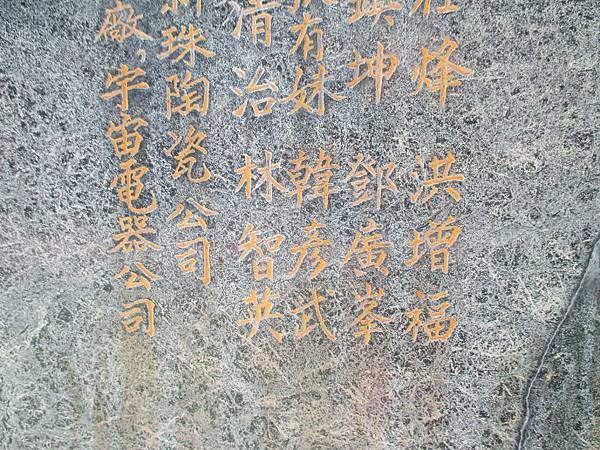 烽 洪增福
鎮坤 鄧廣峯
有妹 韓彥武
清治 林智英
珠陶瓷公司
廠，宇宙電器公司